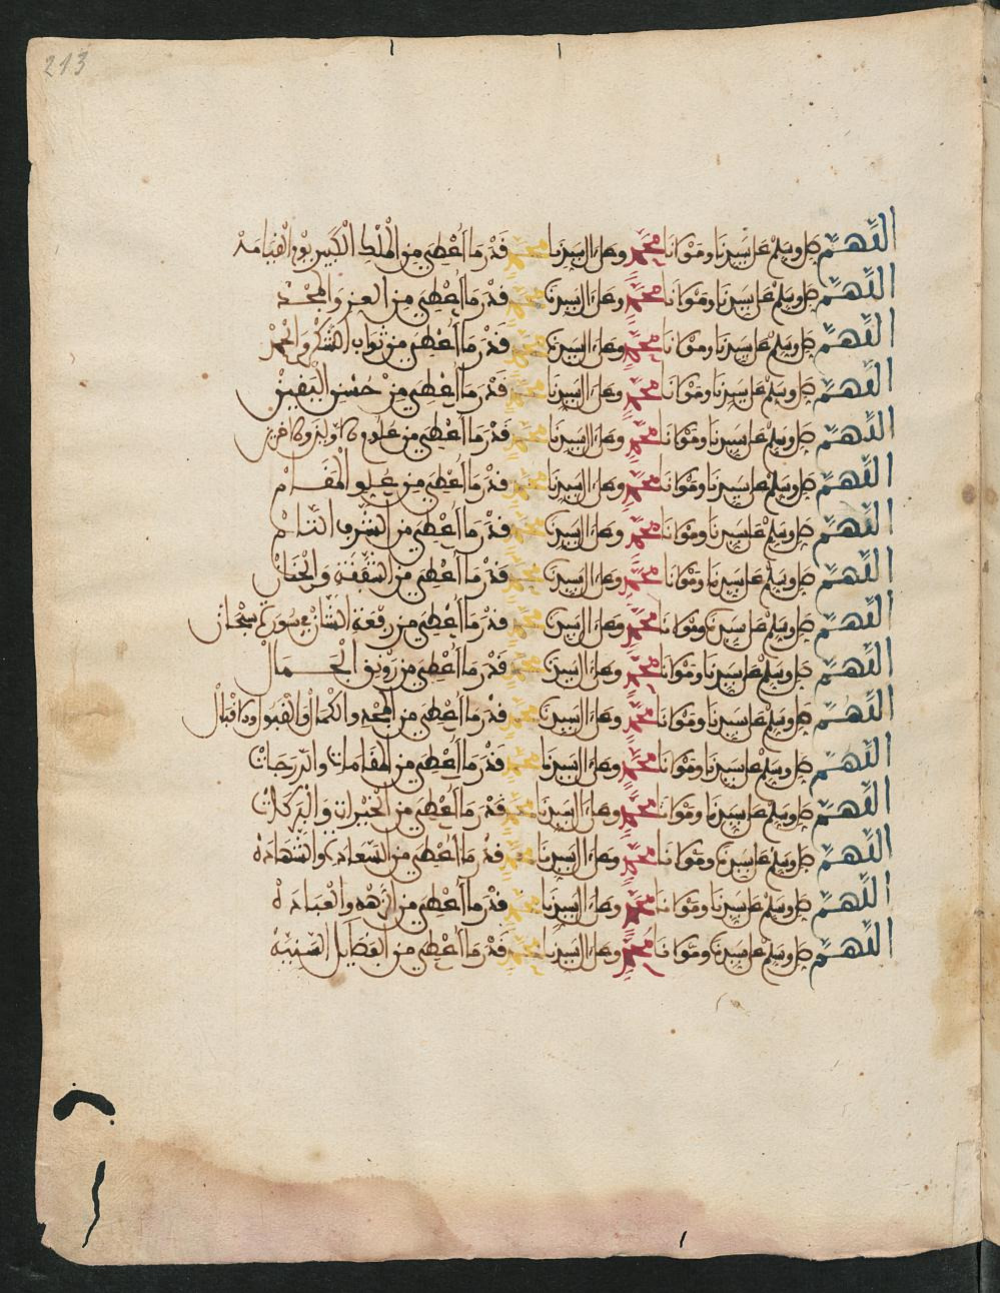 213
اللهم صل وسلم على سيدنا ومولانا محمد وعلى ءال سيدنا محمد قدر ما أعطي من الملك الكبير يوم القيامة
اللهم صل وسلم على سيدنا ومولانا محمد وعلى ءال سيدنا محمد قدر ما أعطي من العز والمجد
اللهم صل وسلم على سيدنا ومولانا محمد وعلى ءال سيدنا محمد قدر ما أعطي من ثواب الشكر والحمد
اللهم صل وسلم على سيدنا ومولانا محمد وعلى ءال سيدنا محمد قدر ما أعطي من حسن اليقين
اللهم صل وسلم على سيدنا ومولانا محمد وعلى ءال سيدنا محمد قدر ما أعطي من علوم الأولين والآخرين
اللهم صل وسلم على سيدنا ومولانا محمد وعلى ءال سيدنا محمد قدر ما أعطي من علو المقام
اللهم صل وسلم على سيدنا ومولانا محمد وعلى ءال سيدنا محمد قدر ما أعطي من الشرف التام
اللهم صل وسلم على سيدنا ومولانا محمد وعلى ءال سيدنا محمد قدر ما أعطي من الشفقة والحنان
اللهم صل وسلم على سيدنا ومولانا محمد وعلى ءال سيدنا محمد قدر ما أعطي من رفعة الشأن في سورة سبحان
اللهم صل وسلم على سيدنا ومولانا محمد وعلى ءال سيدنا محمد قدر ما أعطي من رونق الجمال
اللهم صل وسلم على سيدنا ومولانا محمد وعلى ءال سيدنا محمد قدر ما أعطي من المجد والكمال والقبول والاقبال
اللهم صل وسلم على سيدنا ومولانا محمد وعلى ءال سيدنا محمد قدر ما أعطي من المقامات والدرجات
اللهم صل وسلم على سيدنا ومولانا محمد وعلى ءال سيدنا محمد قدر ما أعطي من الخيرات والبركات
اللهم صل وسلم على سيدنا ومولانا محمد وعلى ءال سيدنا محمد قدر ما أعطي من السعادة والشهادة
اللهم صل وسلم على سيدنا ومولانا محمد وعلى ءال سيدنا محمد قدر ما أعطي من الزهد والعبادة
اللهم صل وسلم على سيدنا ومولانا محمد وعلى ءال سيدنا محمد قدر ما أعطي من الفضايل السنية